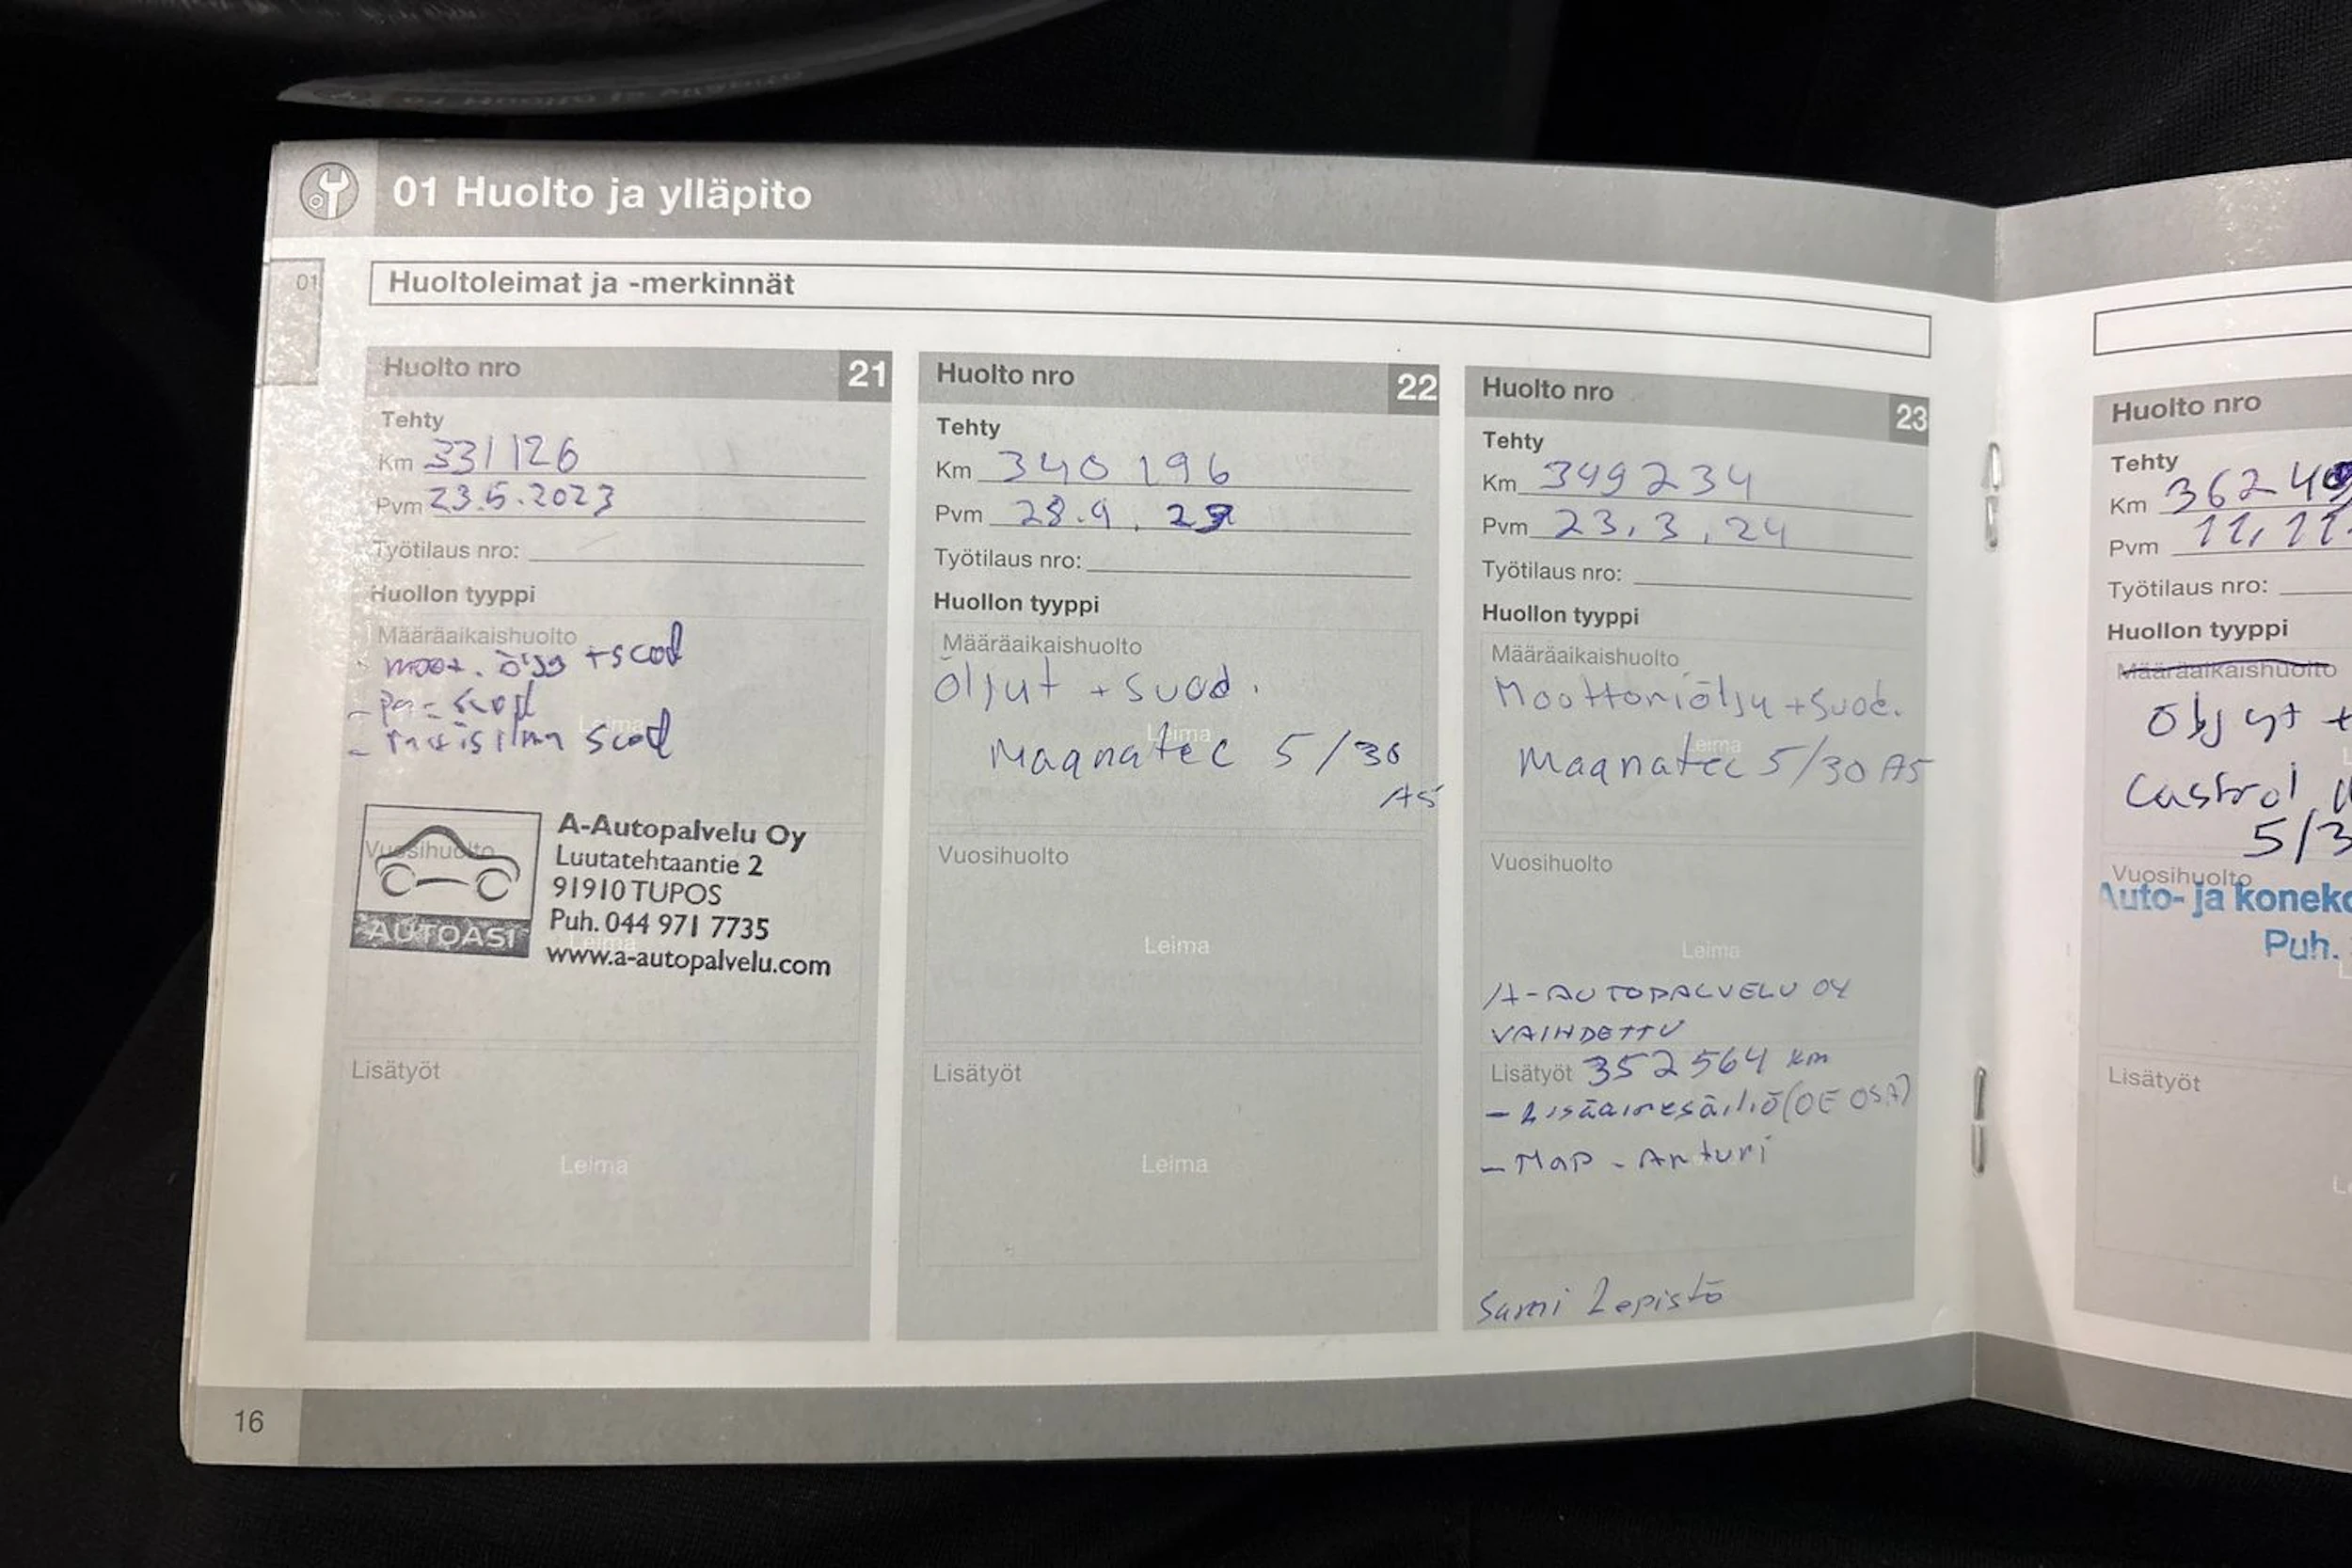 01 Huolto ja ylläpito
01
Huoltoleimat ja -merkinnät
Huolto nro 21
Tehty
Km 331126
Pvm 23.5.2023
Työtilaus nro:
Huollon tyyppi
Määräaikaishuolto
moot. öljy + suod
Leima
- raitisilma suod
A-Autopalvelu Oy
Luutatehtaantie 2
91910 TUPOS
Puh. 044 971 7735
www.a-autopalvelu.com
AUTOASI
Vuosihuolto
Leima
Lisätyöt
Leima
Huolto nro 22
Tehty
Km 340 196
Pvm 28.9.23
Työtilaus nro:
Huollon tyyppi
Määräaikaishuolto
öljyt + suod.
Leima
Magnatec 5/30
A5
Vuosihuolto
Leima
Lisätyöt
Leima
Huolto nro 23
Tehty
Km 349234
Pvm 23.3.24
Työtilaus nro:
Huollon tyyppi
Määräaikaishuolto
Moottoriöljy + suod.
Leima
Magnatec 5/30 A5
Vuosihuolto
Leima
A-AUTOPALVELU OY
VAIHDETTU
Lisätyöt 352564 km
- Lisäainesäiliö (OE OSA)
- MAP - Anturi
Sami Lepistö
16
Huolto nro
Tehty
Km
Pvm 11.11.
Työtilaus nro:
Huollon tyyppi
Määräaikaishuolto
Öljyt +
Castrol
5/3
Vuosihuolto
Auto- ja konek
Puh.
Lisätyöt